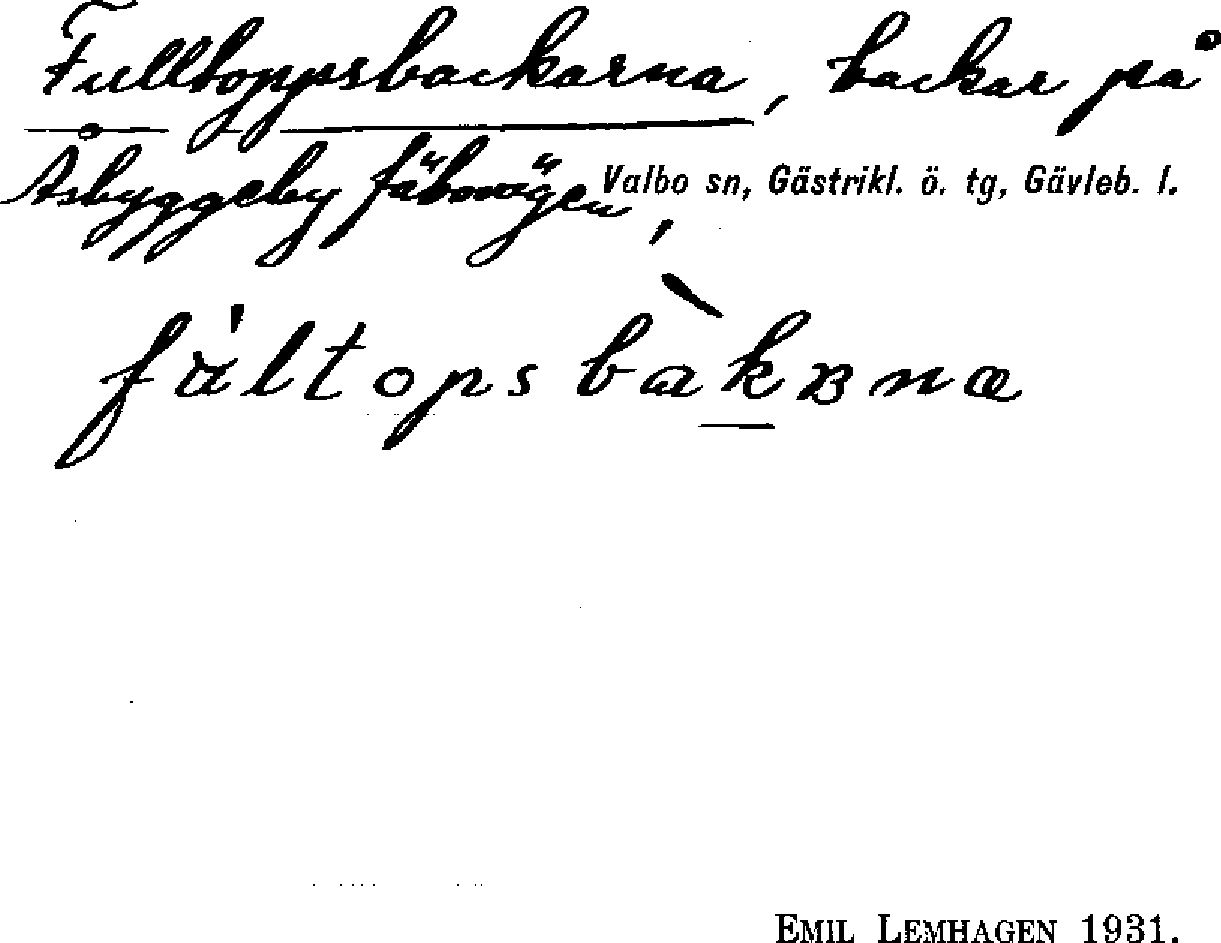 Fulltoppsbackarna, backar på
Åsbyggeby fäbovägen,
Valbo sn, Gästrikl. ö. tg, Gävleb. l.
fúltops bàkʙnɑ
EMIL LEMHAGEN 1931.